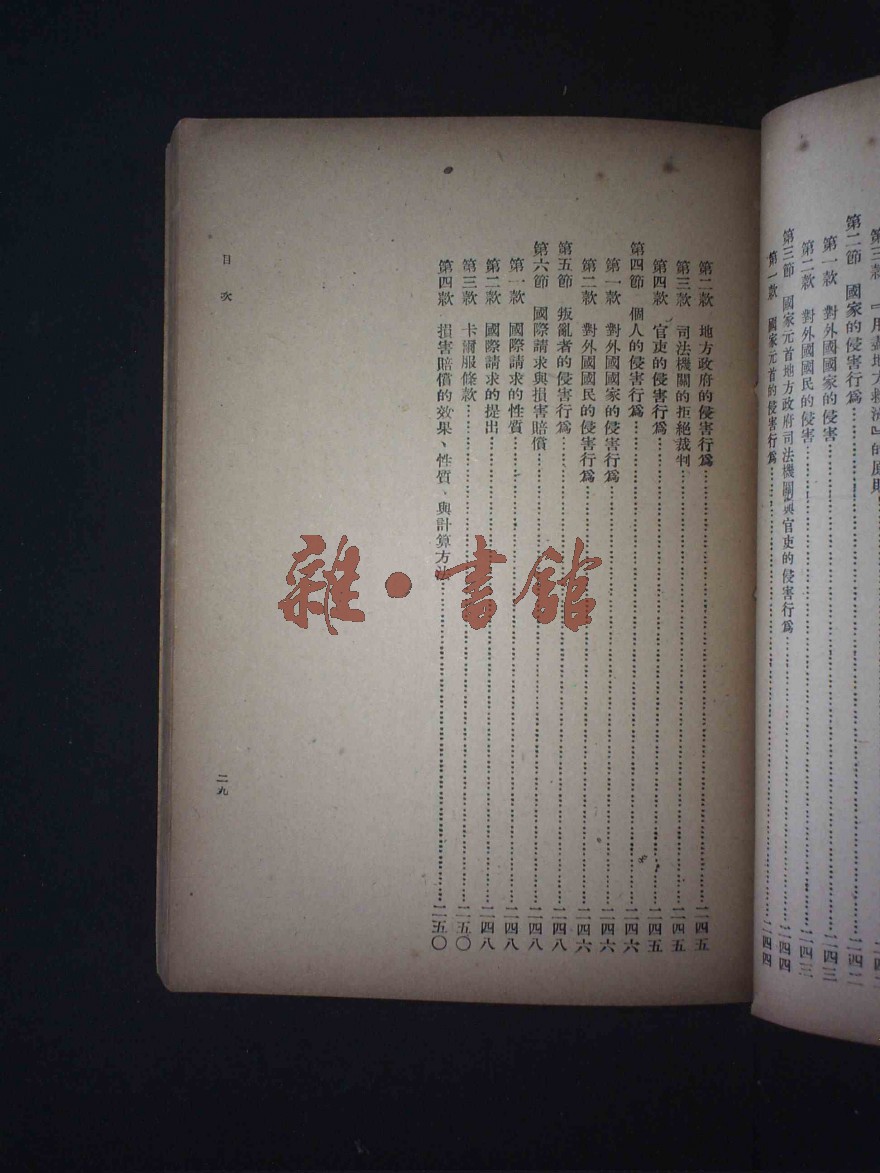 第三款 『用盡地方救濟』的原則
第二節 國家的侵害行爲……二四二
第一款 對外國國家的侵害……二四三
第二款 對外國國民的侵害……二四三
第三節 國家元首地方政府司法機關與官吏的侵害行爲……二四四
第一款 國家元首的侵害行爲……二四四
第二款 地方政府的侵害行爲……二四五
第三款 司法機關的拒絕裁判……二四五
第四款 官吏的侵害行爲……二四五
第四節 個人的侵害行爲……二四六
第一款 對外國國家的侵害行爲……二四六
第二款 對外國國民的侵害行爲……二四六
第五節 叛亂者的侵害行爲……二四八
第六節 國際請求與損害賠償……二四八
第一款 國際請求的性質……二四八
第二款 國際請求的提出……二四八
第三款 卡爾服條款……二五〇
第四款 損害賠償的效果、性質、與計算方法……二五〇
目次
二九
雜·書館